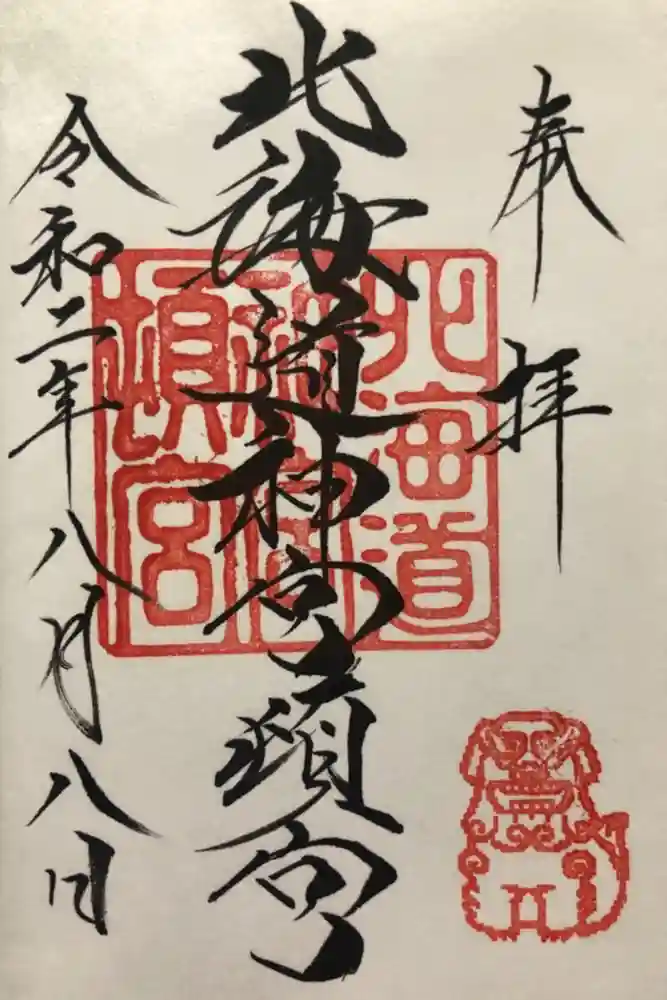 奉拝
北海道神宮頓宮
令和二年八月八日
北海道
神宮
頓宮